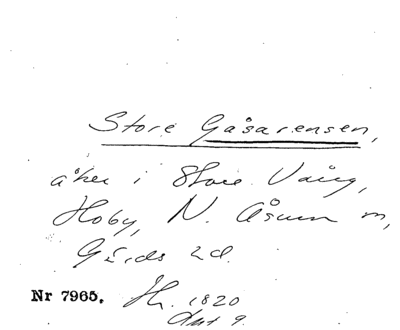 Store Gåsarensen,
åker i Store Vång,
Hoby, N. Åsum m,
Gärds hd.
Nr 7965. Jh. 1820
Akt 9.